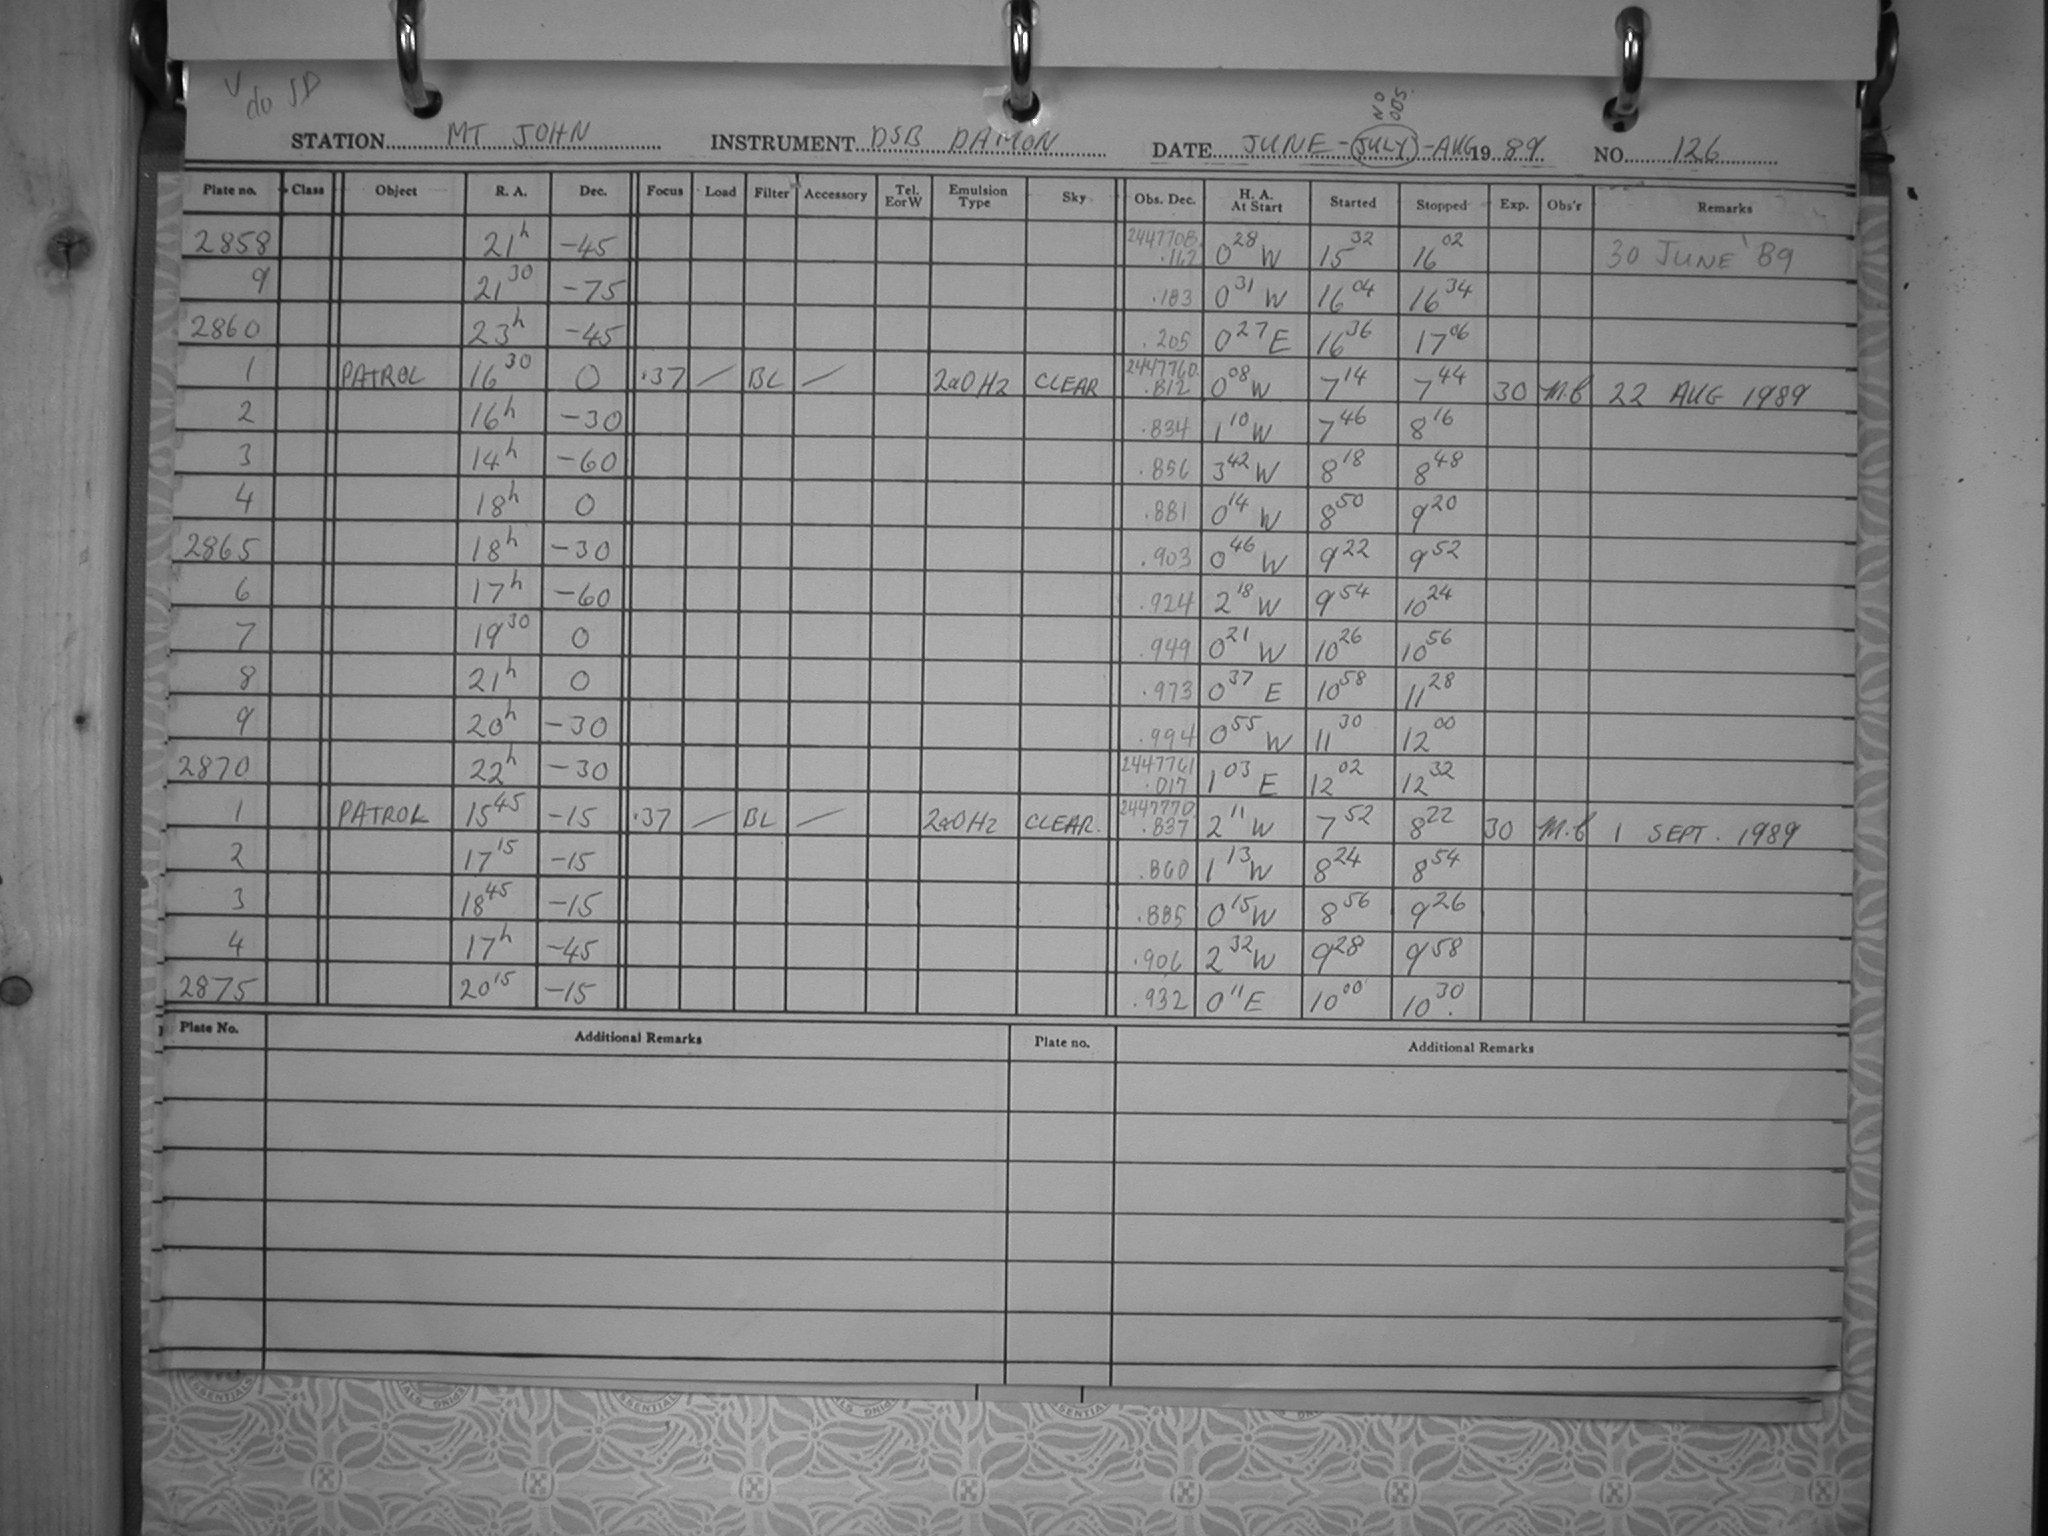 V do SD
NO OBS.
STATION MT JOHN INSTRUMENT DSB DAMON DATE JUNE-JULY-AUG 19 89 NO. 126
Plate no. Class Object R. A. Dec. Focus Load Filter Accessory Tel. E or W Emulsion Type Sky Obs. Dec. H. A. At Start Started Stopped Exp. Obs'r Remarks
2858 21h -45 2447708.162 0 28 W 15 32 16 02 30 JUNE '89
9 21 30 -75 .183 0 31 W 16 04 16 34
2860 23h -45 .205 0 27 E 16 36 17 06
1 PATROL 16 30 0 .37 / BL / 2aOH2 CLEAR 2447760.812 0 08 W 7 14 7 44 30 22 AUG 1989
2 16h -30 .834 1 10 W 7 46 8 16
3 14h -60 .856 3 42 W 8 18 8 48
4 18h 0 .881 0 14 W 8 50 9 20
2865 18h -30 .903 0 46 W 9 22 9 52
6 17h -60 .924 2 18 W 9 54 10 24
7 19 30 0 .949 0 21 W 10 26 10 56
8 21h 0 .973 0 37 E 10 58 11 28
9 20h -30 .994 0 55 W 11 30 12 00
2870 22h -30 2447761.017 1 03 E 12 02 12 32
1 PATROL 15 45 -15 .37 / BL / 2aOH2 CLEAR. 2447770.837 2 11 W 7 52 8 22 30 1 SEPT. 1989
2 17 15 -15 .860 1 13 W 8 24 8 54
3 18 45 -15 .885 0 15 W 8 56 9 26
4 17h -45 .906 2 32 W 9 28 9 58
2875 20 15 -15 .932 0 11 E 10 00 10 30.
Plate No. Additional Remarks Plate no. Additional Remarks